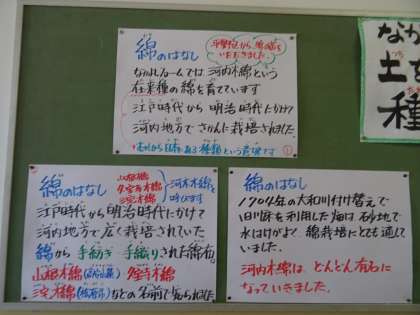 綿のはなし
平野区から綿の苗を
いただきました
なかよしルームでは河内木綿という
在来種の綿を育てています
江戸時代から明治時代にかけて
河内地方でさかんに栽培されました
綿のはなし
山根木綿
久宝寺木綿
河内木綿と
呼びます
江戸時代から明治時代にかけて
河内地方で広く栽培されていた
綿から手紡ぎ手織りされた綿布。
山根木綿
久宝寺木綿
などの名前で知られました
綿のはなし
1704年の大和川付け替えで
旧川床を利用した畑は砂地で
水はけがよく綿栽培にとても適して
いました。
河内木綿は、どんどん有名に
なっていきました。
なか
土を
種